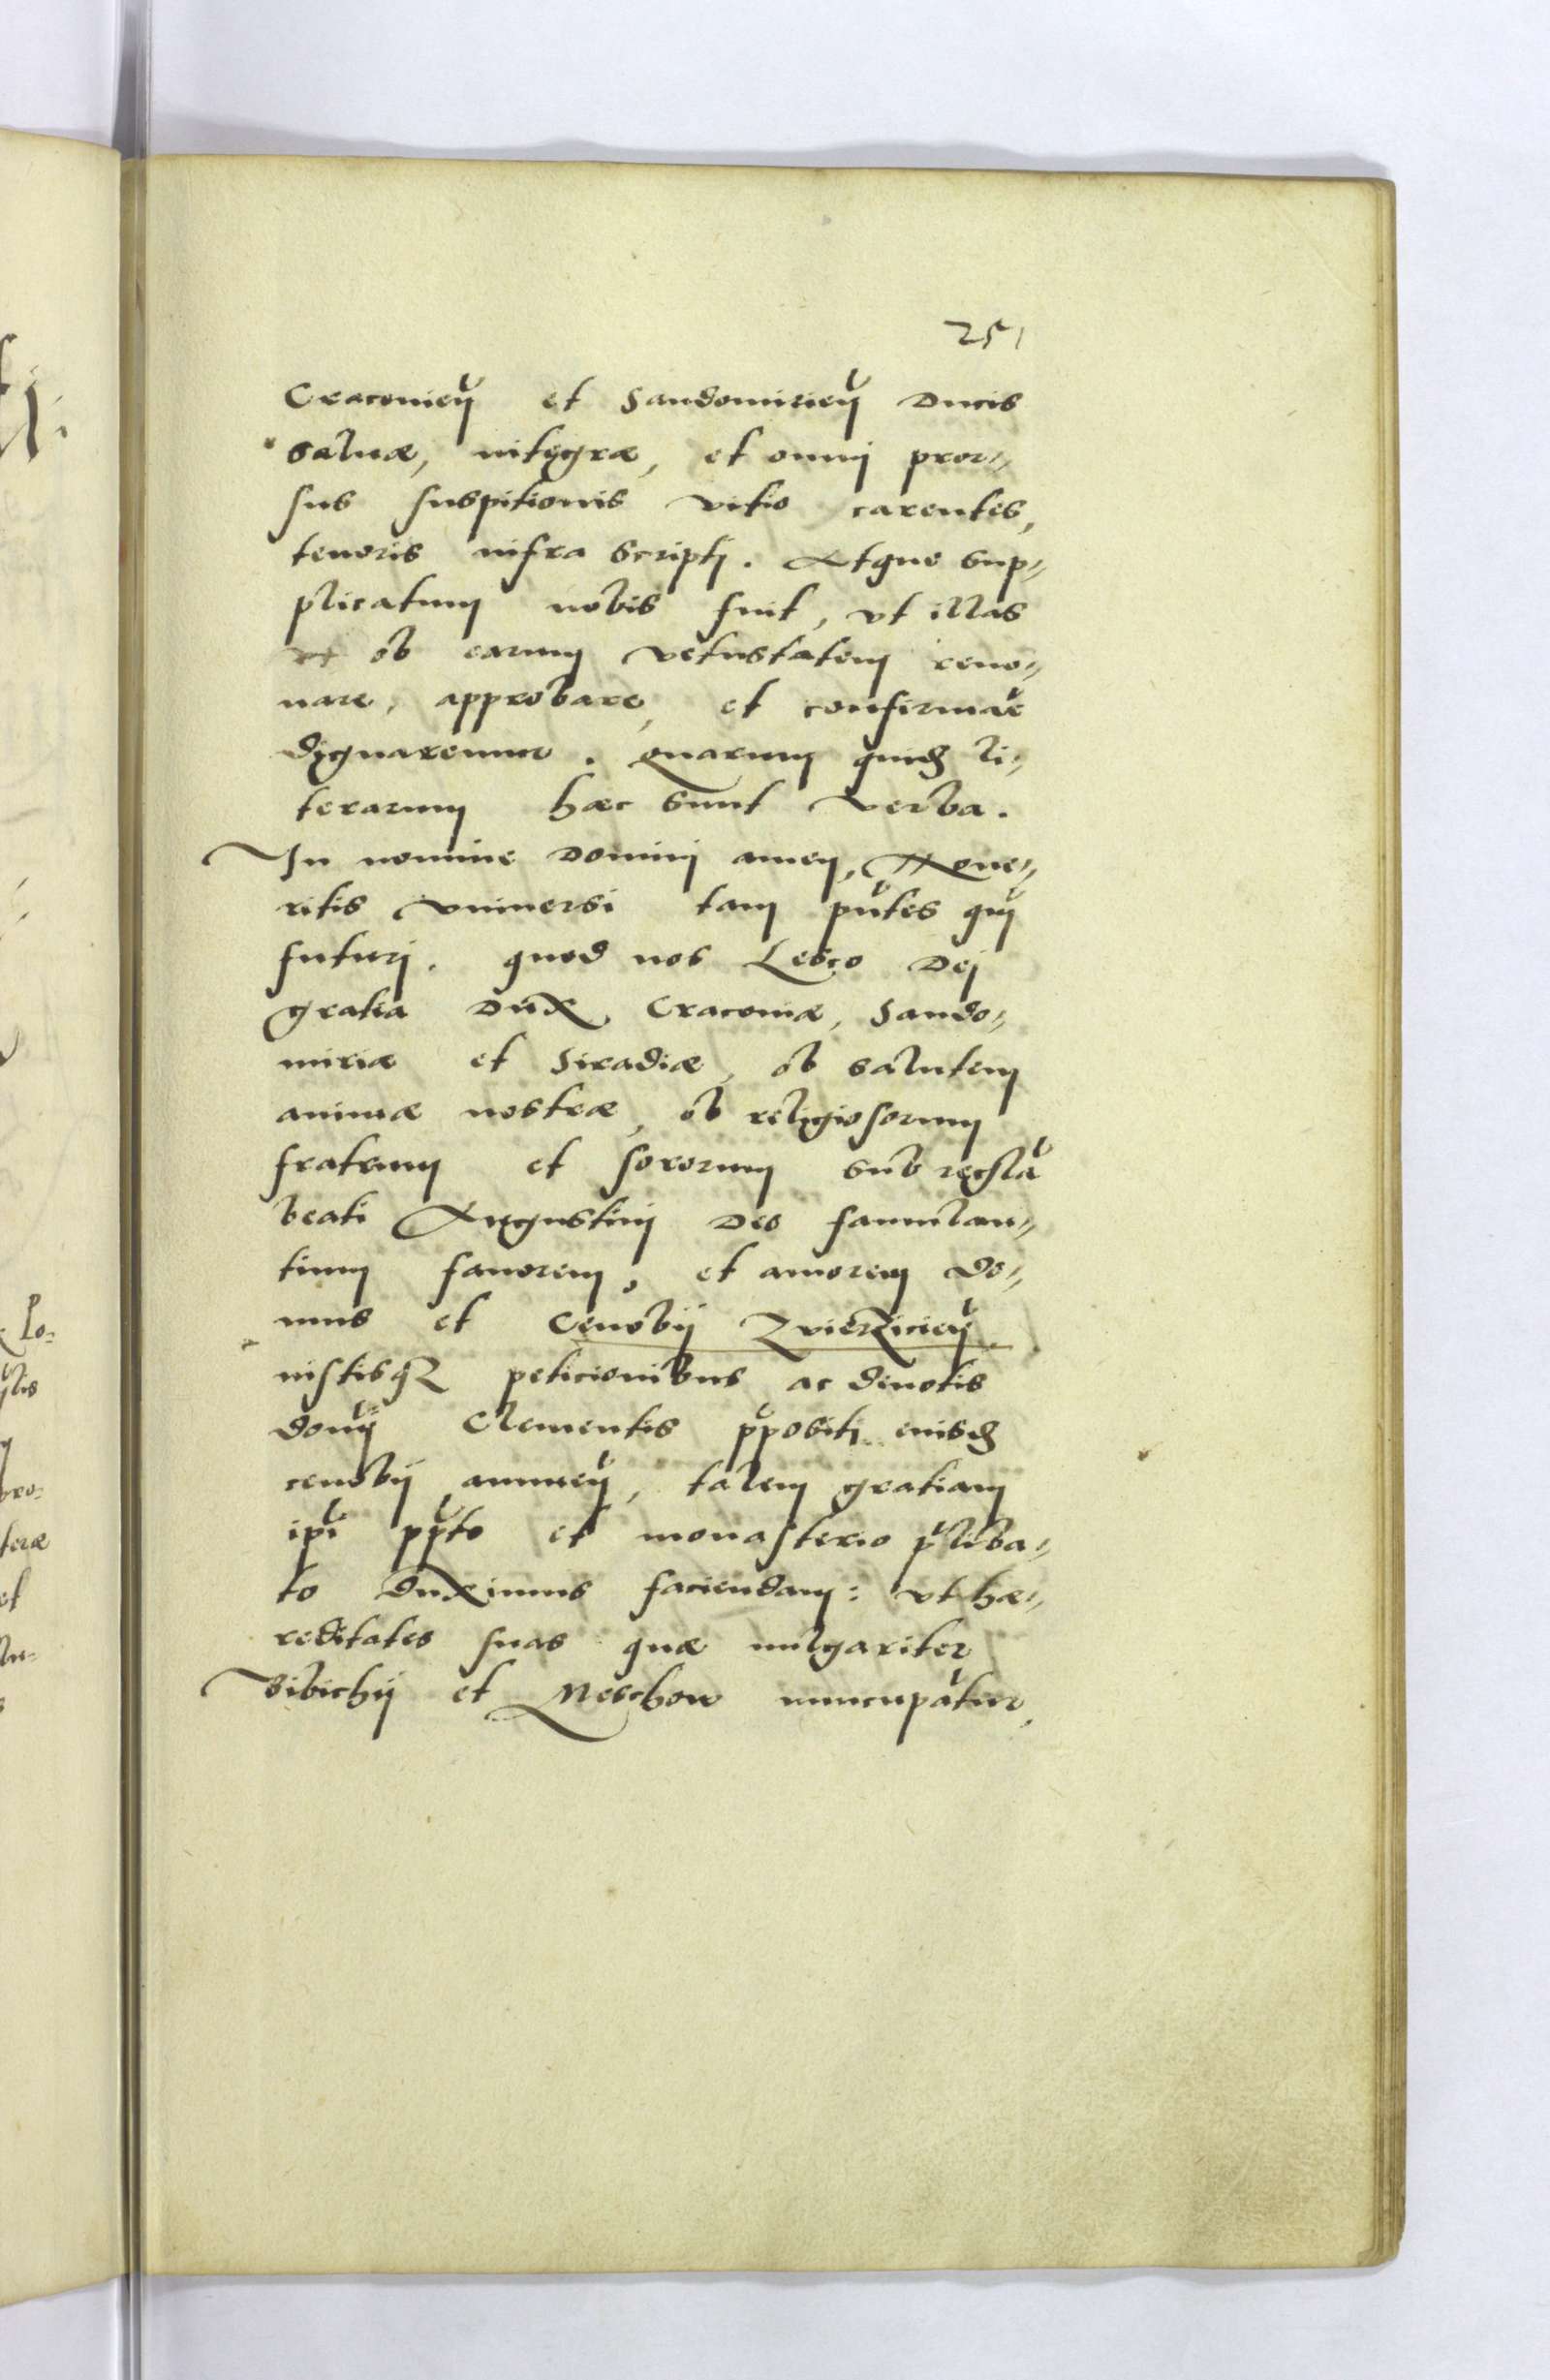 251
Craconieñ et Sandomirieñ Ducis
saluæ, integræ, et omni pror=
sus suspitionis vitio carentes,
tenoris infra scripti. Atque sup=
plicatum nobis fuit, vt illas
ob earum vetustatem reno=
uare, approbare, et confirmare
dignaremur. Quarum quidem li=
terarum hæc sunt verba.
In nomine Domini amen, Noue=
ritis vniuersi tam pñtes qm̃
futuri. quod nos Lesco Dei
gratia Dux Craconiæ, Sando=
miriæ et Siradiæ, ob salutem
animæ nostræ, ob religiosorum
fratrum et sororum sub regl̃a
beati Augustini Deo famulan=
tium fauorem, et amorem do=
mus et Cenobij Zvierzicień
iustisq3 peticionibus ac deuotis
domĩ Clementis p̃positi eiusd
cenobij annueñ, talem gratiam
ip̃i pp̃to et monasterio p̃liba=
to duximus faciendam: vt hæ=
reditates suas quæ uulgariter
Bibichij et Meschow nuncupãtur,
P
Lo=
bro=
teræ
et